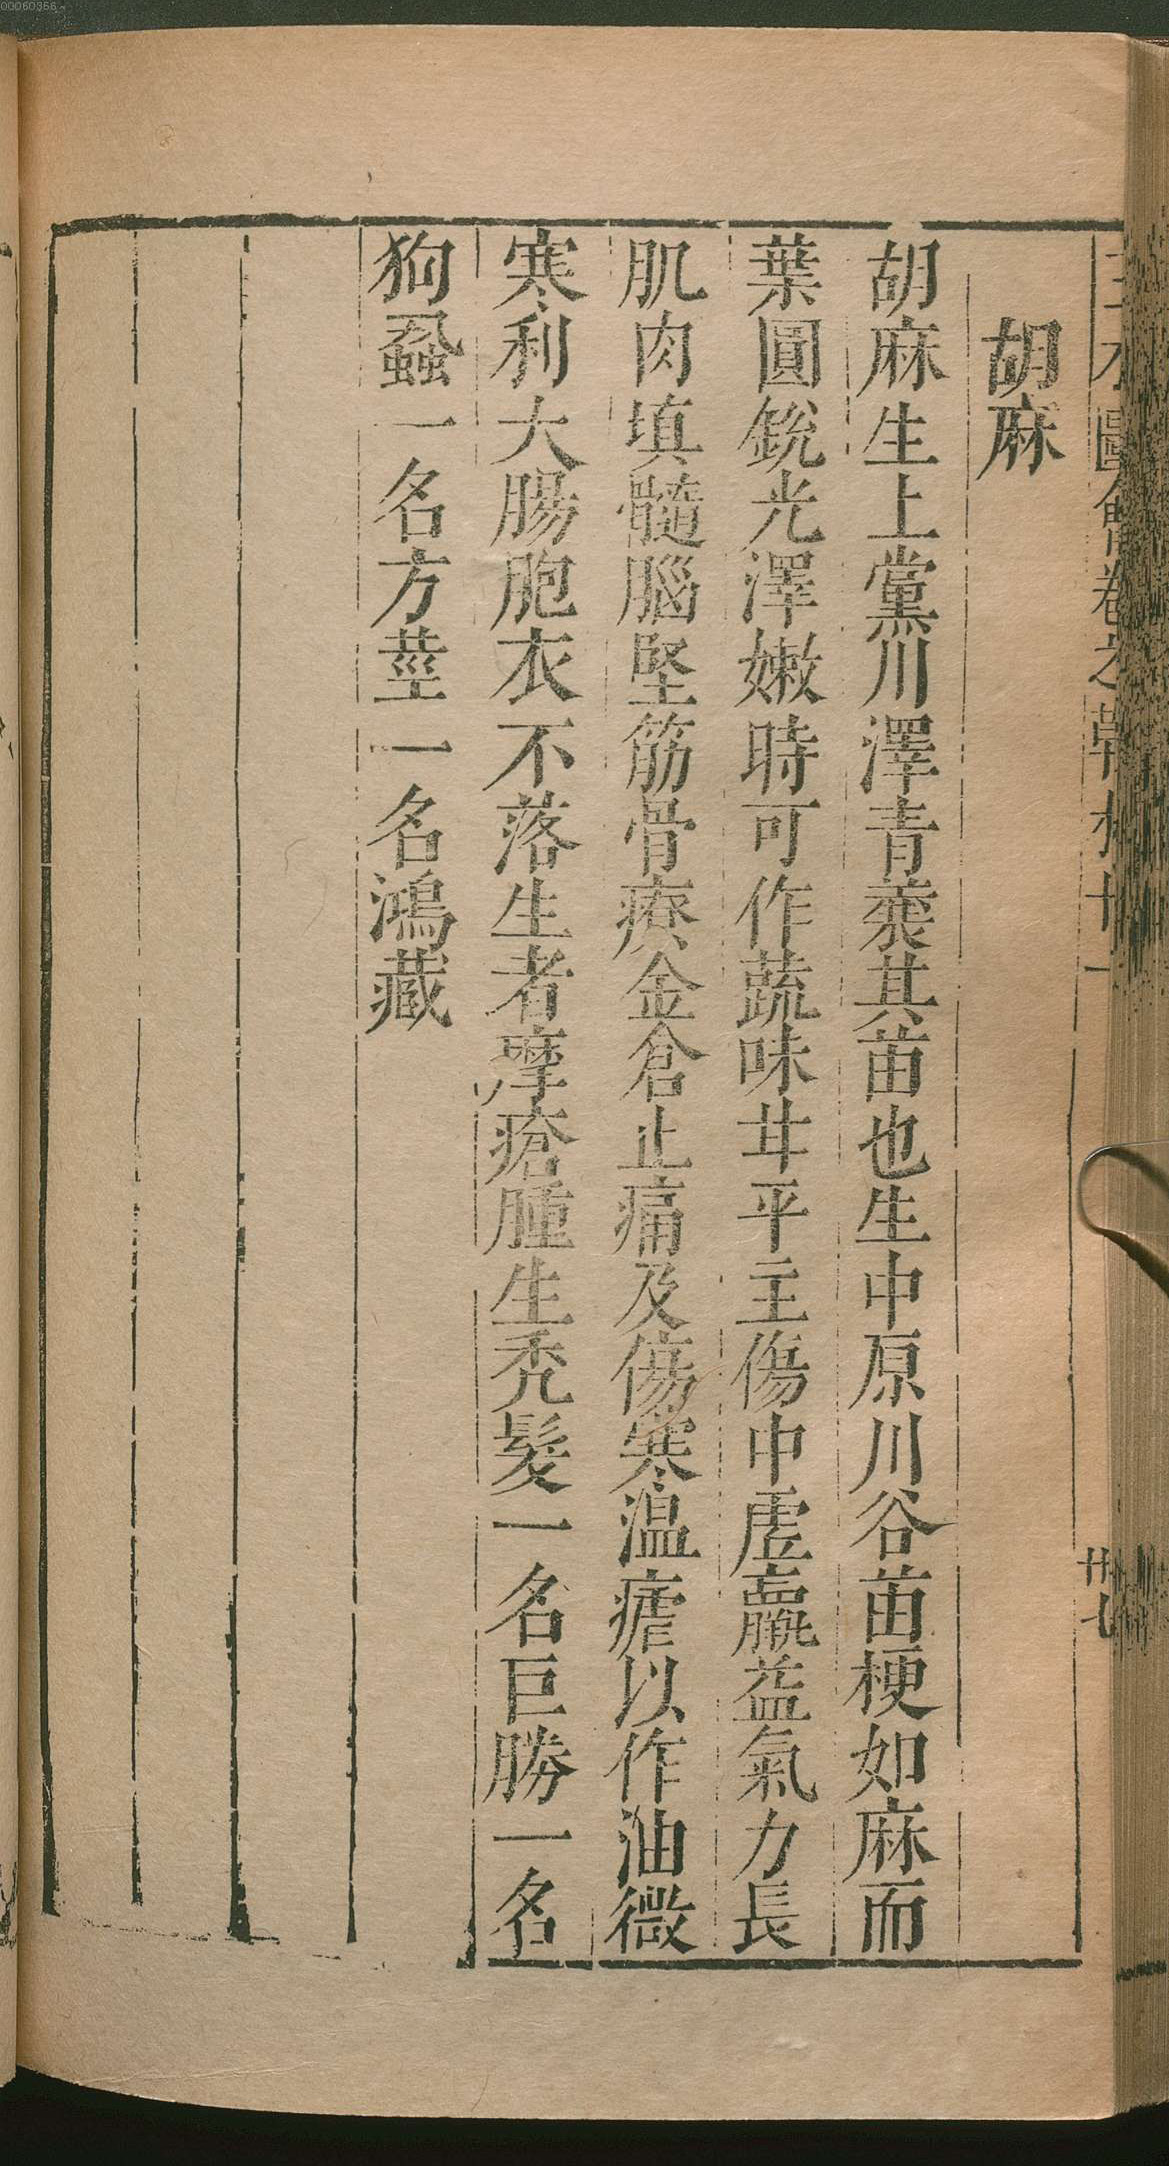 00060356
三才圖會卷之草木十一
廿七
胡麻
胡麻生上黨川澤青蘘其苗也生中原川谷苗梗如麻而
葉圓銳光澤嫩時可作蔬味甘平主傷中虛羸益氣力長
肌肉填髓腦堅筋骨療金倉止痛及傷寒溫瘧以作油微
寒利大腸胞衣不落生者摩瘡腫生禿髮一名巨勝一名
狗蝨一名方莖一名鴻藏